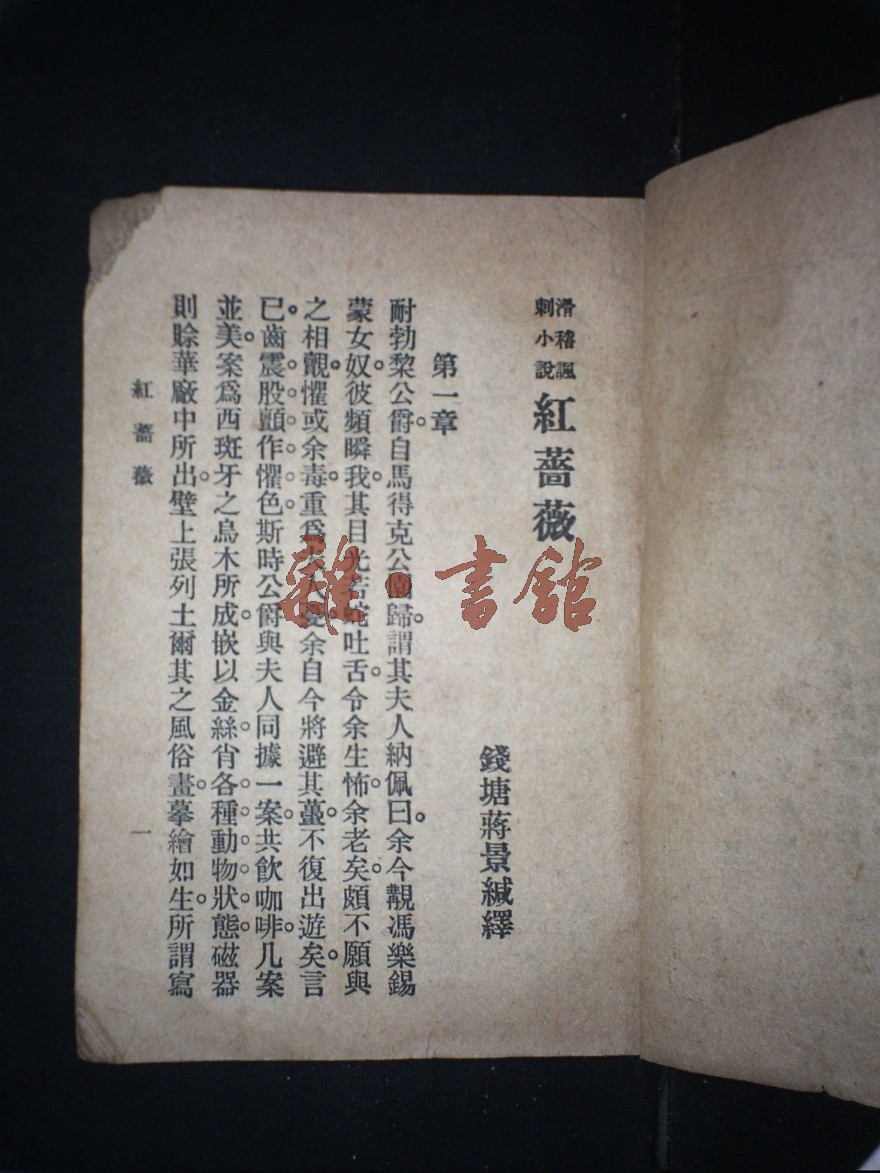 滑稽諷
刺小說
紅薔薇
錢塘蔣景緘繹
第一章
耐勃黎公爵。自馬得克公園歸。謂其夫人納佩曰。余今覯馮樂錫
蒙女奴。彼頻瞬我。其目光若蛇吐舌。令余生怖。余老矣。頗不願與
之相覿。懼或余毒。重爲夫人憂。余自今將避其蠆。不復出遊矣。言
已。齒震股顫。作懼色。斯時公爵與夫人同據一案。共飲咖啡。几案
並美。案爲西班牙之烏木所成。嵌以金絲。肖各種動物狀態。磁器
則賒華廠中所出。壁上張列土爾其之風俗畫。摹繪如生。所謂寫
紅薔薇
一
雜·書館